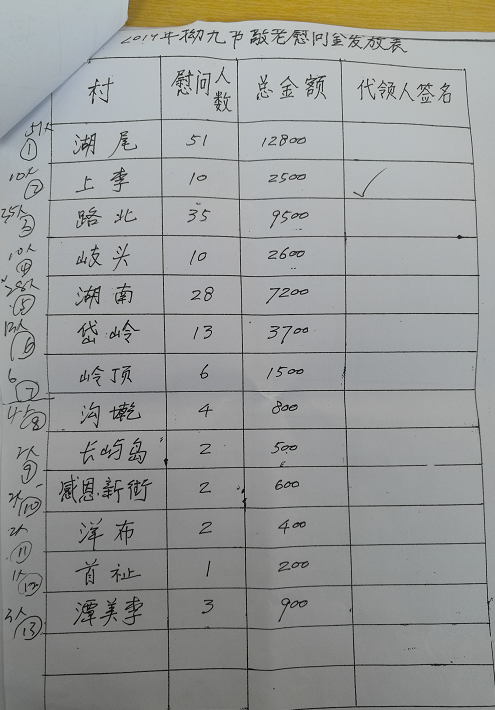 2019年拗九节敬老慰问金发放表
村 慰问人数 总金额 代领人签名
51人 ① 湖尾 51 12800
10人 ② 上李 10 2500 ✓
35人 ③ 路北 35 9500
10人 ④ 岐头 10 2600
28人 ⑤ 湖南 28 7200
13人 ⑥ 岱岭 13 3700
6 ⑦ 岭顶 6 1500
4人 ⑧ 沟墘 4 800
2人 ⑨ 长屿岛 2 500
2人 ⑩ 感恩新街 2 600
2人 ⑪ 洋布 2 400
1人 ⑫ 首祉 1 200
3人 ⑬ 潭美李 3 900